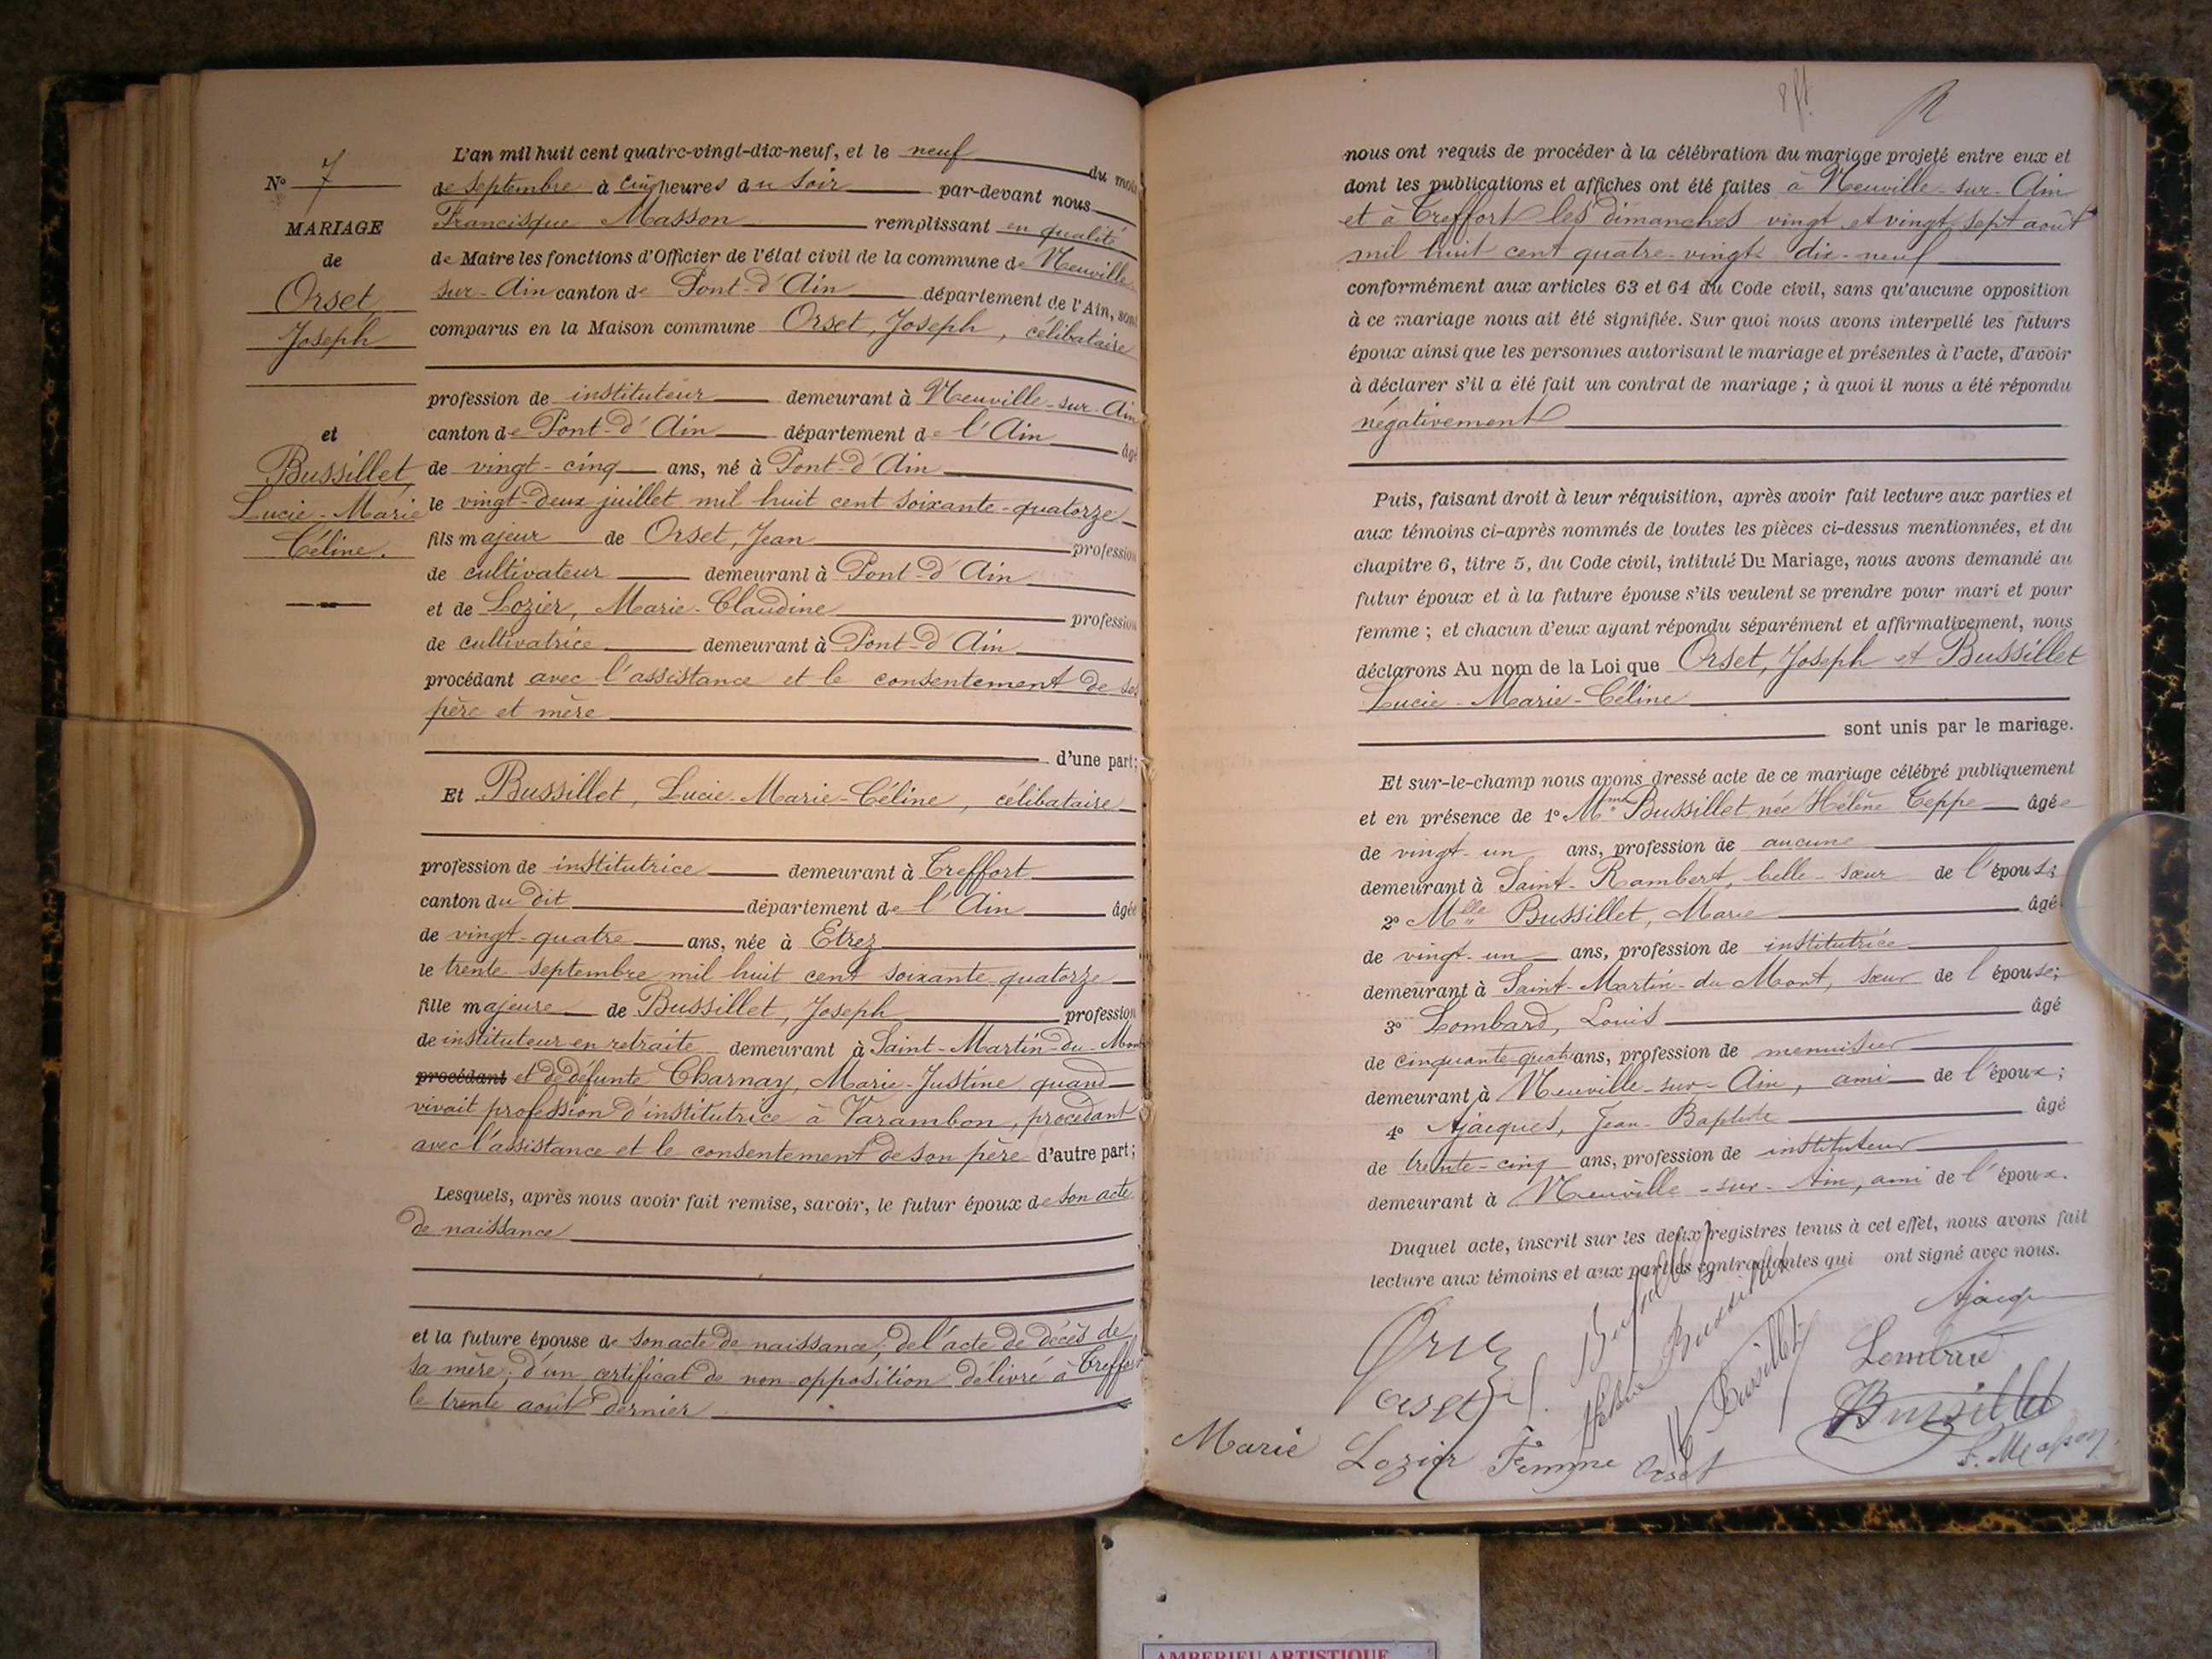 N° 7
MARIAGE
de
Orset,
Joseph
et
Bussillet,
Lucie-Marie
Céline.
L'an mil huit cent quatre-vingt-dix-neuf, et le neuf du mois
de Septembre à cinq heures du soir par-devant nous
Francisque Masson remplissant en qualité
de Maire les fonctions d'Officier de l'état civil de la commune de Neuville
sur-Ain canton de Pont-d'Ain département de l'Ain, sont
comparus en la Maison commune Orset, Joseph, célibataire
profession de instituteur demeurant à Neuville-sur-Ain
canton de Pont-d'Ain département de l'Ain âgé
de vingt-cinq ans, né à Pont-d'Ain
le vingt-deux juillet mil huit cent soixante-quatorze
fils majeur de Orset, Jean profession
de cultivateur demeurant à Pont-d'Ain
et de Lozier, Marie-Claudine profession
de cultivatrice demeurant à Pont-d'Ain
procédant avec l'assistance et le consentement de ses
père et mère
d'une part;
Et Bussillet, Lucie-Marie-Céline, célibataire
profession de institutrice demeurant à Treffort
canton du dit département de l'Ain âgée
de vingt-quatre ans, née à Etrez
le trente septembre mil huit cent soixante quatorze
fille majeure de Bussillet, Joseph profession
de instituteur en retraite demeurant à Saint-Martin-du-Mont
procédant et de défunte Charnay, Marie-Justine quand
vivait profession d'institutrice à Varambon, procédant
avec l'assistance et le consentement de son père d'autre part;
Lesquels, après nous avoir fait remise, savoir, le futur époux de son acte
de naissance
et la future épouse de son acte de naissance; de l'acte de décès de
sa mère; d'un certificat de non-opposition délivré à Treffort
le trente août dernier
nous ont requis de procéder à la célébration du mariage projeté entre eux et
dont les publications et affiches ont été faites à Neuville-sur-Ain
et à Treffort les dimanches vingt et vingt-sept août
mil huit cent quatre-vingt-dix-neuf
conformément aux articles 63 et 64 du Code civil, sans qu'aucune opposition
à ce mariage nous ait été signifiée. Sur quoi nous avons interpellé les futurs
époux ainsi que les personnes autorisant le mariage et présentes à l'acte, d'avoir
à déclarer s'il a été fait un contrat de mariage; à quoi il nous a été répondu
négativement
Puis, faisant droit à leur réquisition, après avoir fait lecture aux parties et
aux témoins ci-après nommés de toutes les pièces ci-dessus mentionnées, et du
chapitre 6, titre 5, du Code civil, intitulé Du Mariage, nous avons demandé au
futur époux et à la future épouse s'ils veulent se prendre pour mari et pour
femme; et chacun d'eux ayant répondu séparément et affirmativement, nous
déclarons Au nom de la Loi que Orset, Joseph et Bussillet
Lucie-Marie-Céline
sont unis par le mariage.
Et sur-le-champ nous avons dressé acte de ce mariage célébré publiquement
et en présence de 1° Mme Bussillet née Hélène Teppe âgée
de vingt-un ans, profession de aucune
demeurant à Saint-Rambert, belle-sœur de l'épouse;
2° Mlle Bussillet, Marie âgé
de vingt-un ans, profession de institutrice
demeurant à Saint-Martin-du-Mont, sœur de l'épouse;
3° Lombard, Louis âgé
de cinquante-quatre ans, profession de menuisier
demeurant à Neuville-sur-Ain, ami de l'époux;
4° Ajacques, Jean-Baptiste âgé
de trente-cinq ans, profession de instituteur
demeurant à Neuville-sur-Ain, ami de l'époux.
Duquel acte, inscrit sur les deux registres tenus à cet effet, nous avons fait
lecture aux témoins et aux parties contractantes qui ont signé avec nous.
Orset J.
Hélène Bussillet
Bussillet
Bussillet
F. Masson
Marie Lozier Femme Orset
AMBERIEU ARTISTIQUE